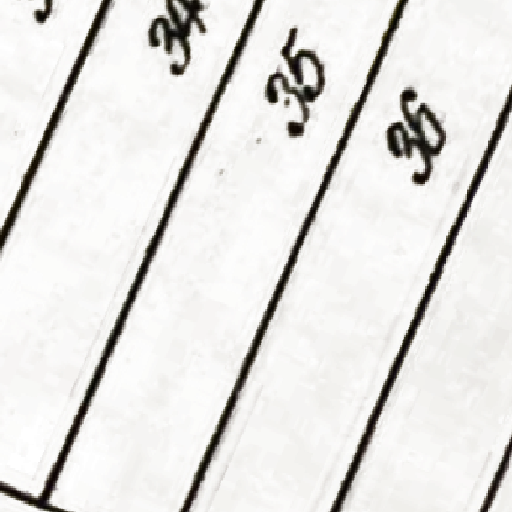 34
35
36